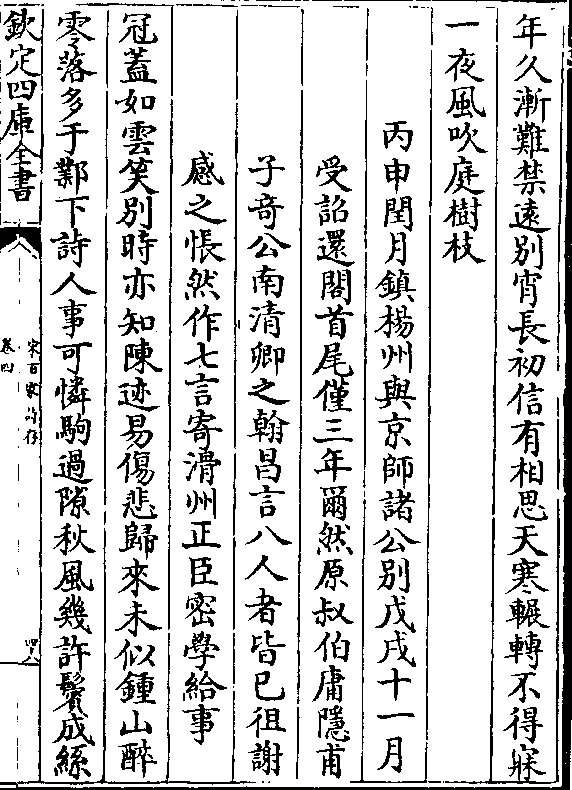 年久漸難禁遠別宵長初信有相思天寒輾轉不得寐
一夜風吹庭樹枝
丙申閏月鎮揚州與京師諸公別戊戌十一月
受詔還闕首尾僅三年爾然原叔伯庸隱甫
子竒公南清卿之翰昌言八人者皆已徂謝
感之悵然作七言寄滑州正臣密學給事
冠蓋如雲笑別時亦知陳迹易傷悲歸來未似鍾山醉
零落多于鄴下詩人事可憐駒過隙秋風幾許鬢成絲
欽定四庫全書
宋百家詩存
卷四